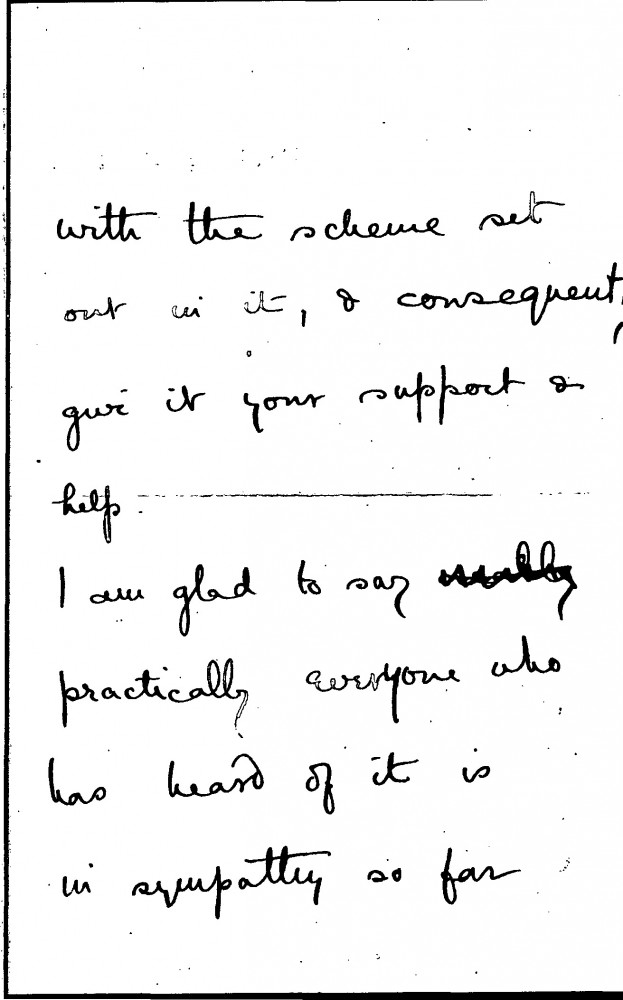 with the scheme set
out in it, & consequent
give it your support &
help.
I am glad to say
practically everyone who
has heard of it is
in sympathy so far